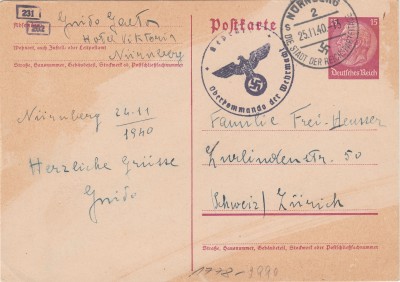 231
202
Guido
Hotel Viktoria
Nürnberg
Wohnort, auch Zustell- oder Leitpostamt
Straße, Hausnummer, Gebäudeteil, Stockwerk od. Postschließfachnummer
Postkarte
Geprüft
Oberkommando der Wehrmacht
NÜRNBERG
2
25.11.40
DIE STADT DER REICHS
15
Deutsches Reich
Nürnberg 24-11
1940
Herzliche Grüsse
Guido
Familie Frei-Heusser
Zurlindenstr. 50
Schweiz/ Zürich
Straße, Hausnummer, Gebäudeteil, Stockwerk oder Postschließfachnummer